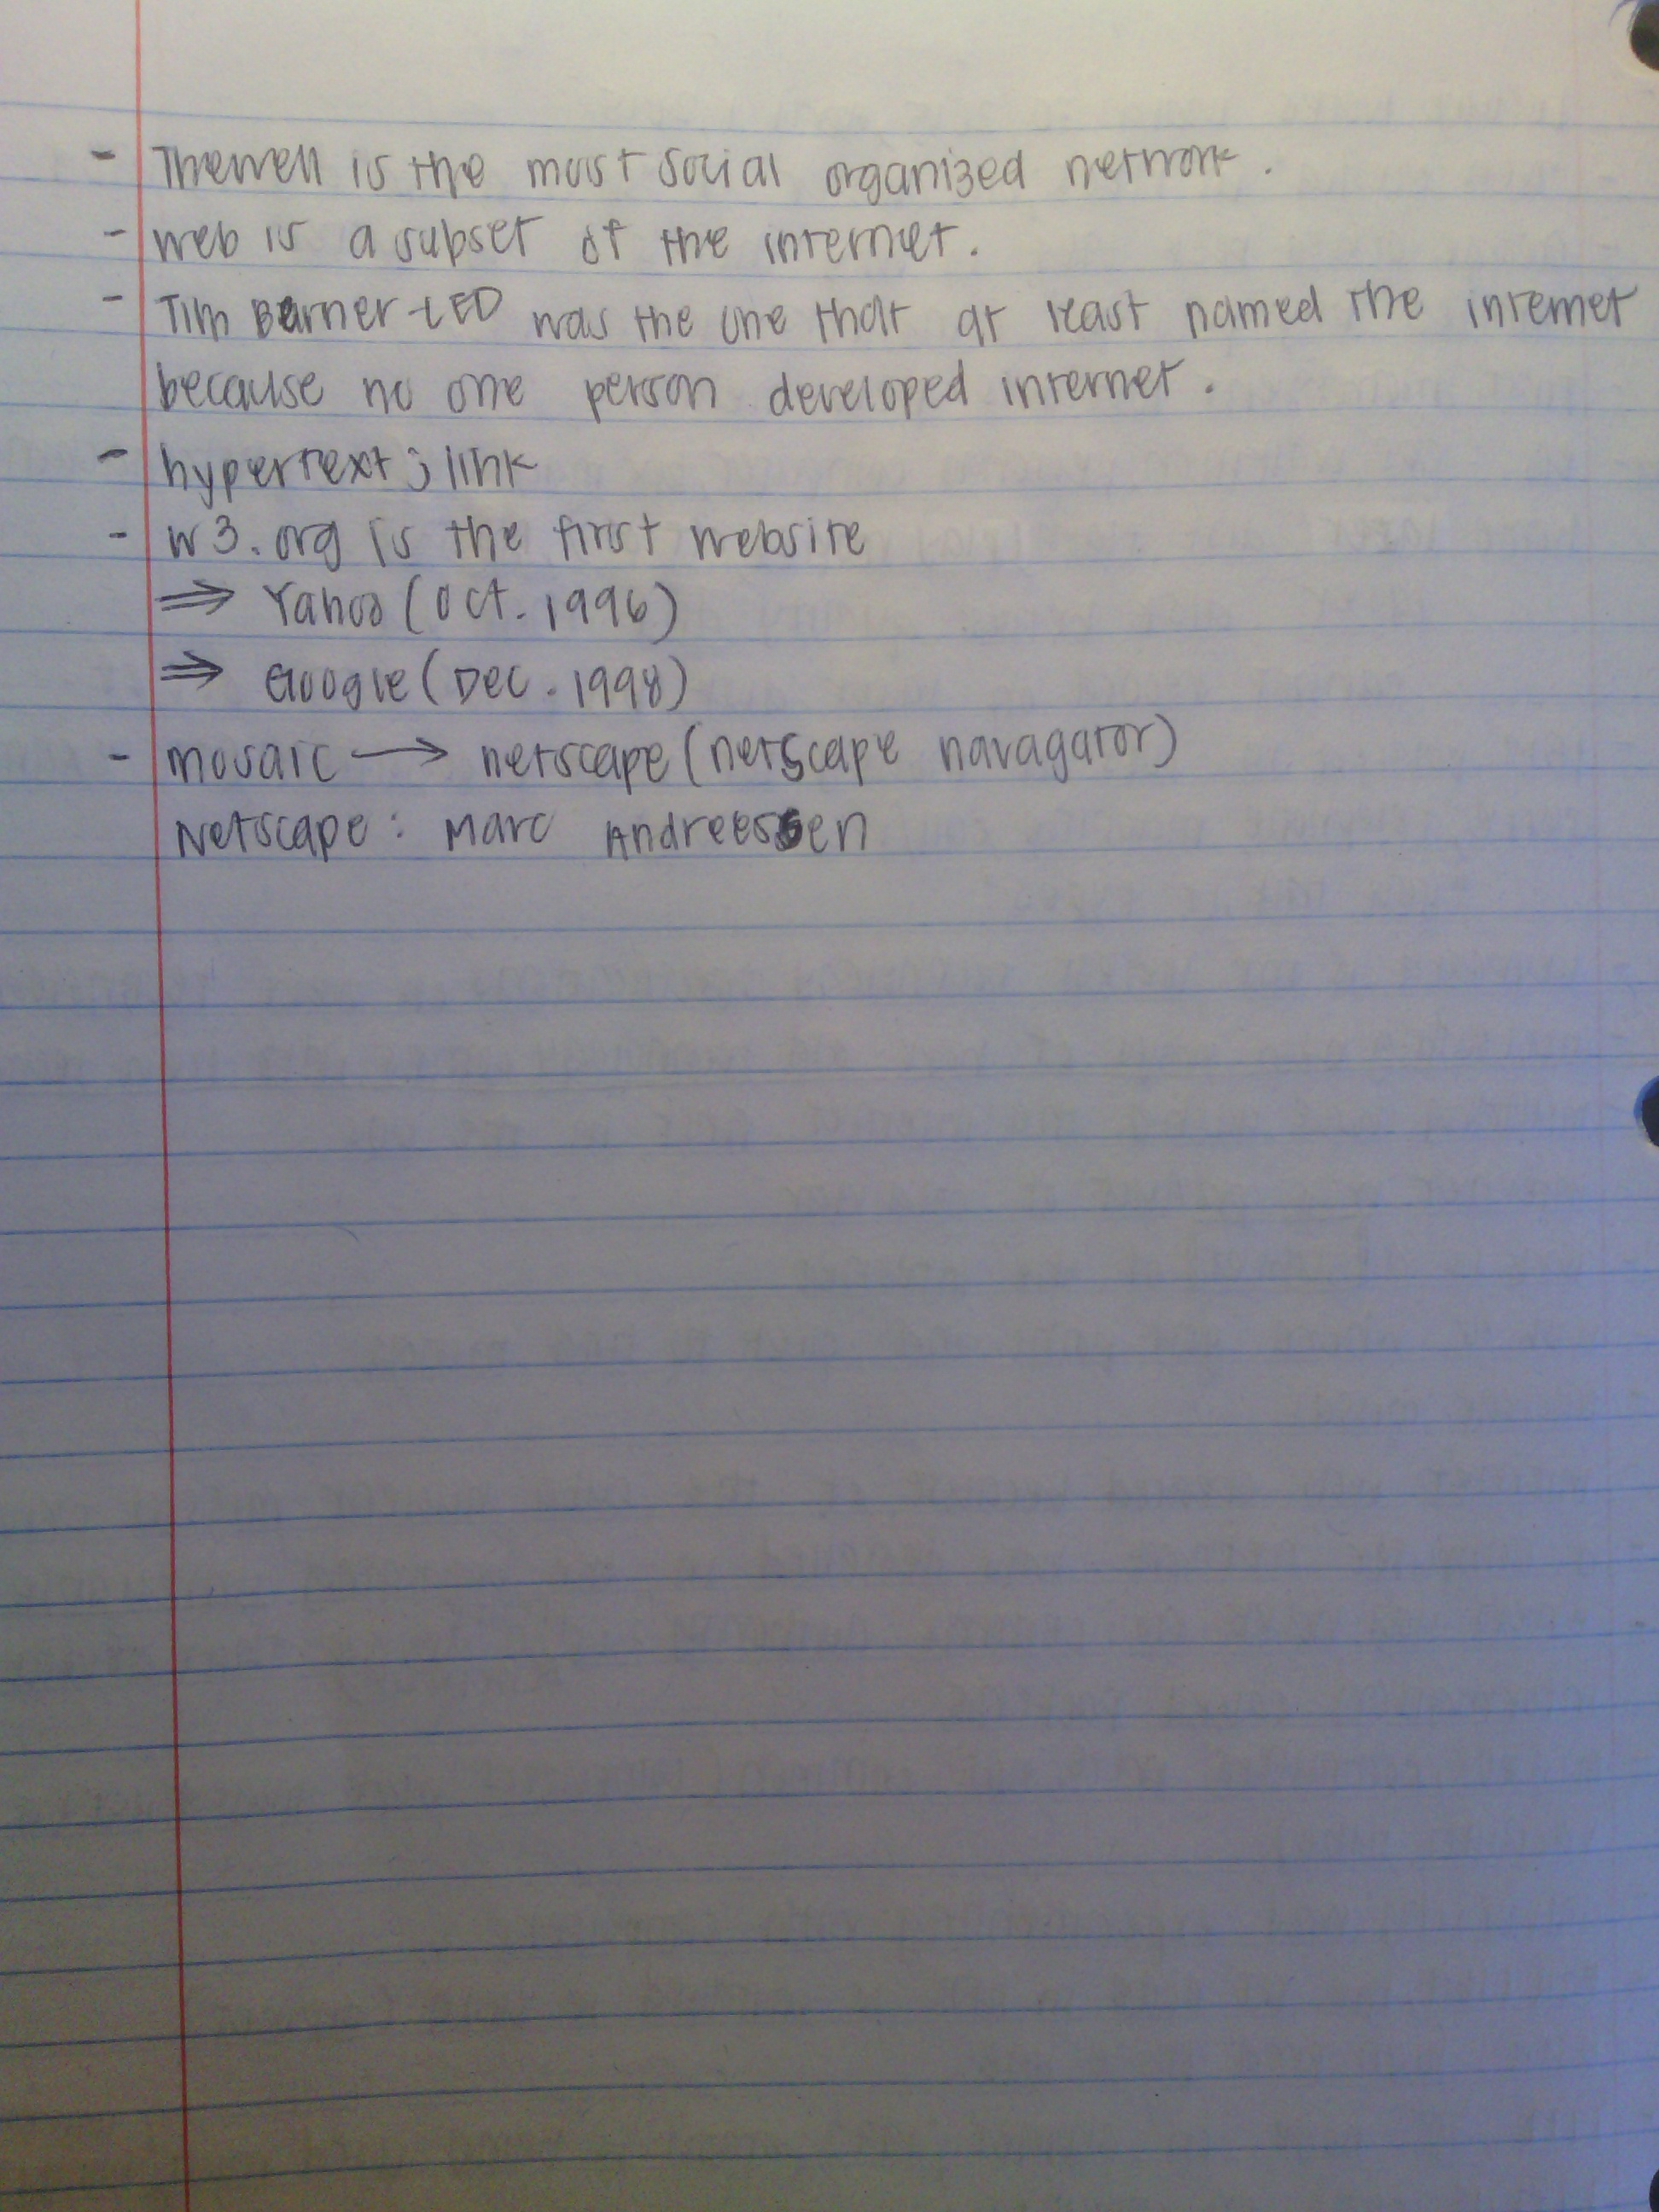 - Thewell is the most social organized network.
- web is a subset of the internet.
- Tim Barner-LED was the one that at least named the internet
because no one person developed internet.
- hypertext; link
- w3.org is the first website
⇒ Yahoo (Oct. 1996)
⇒ Google (Dec. 1998)
- mosaic → netscape (netscape navagator)
Netscape: Marc Andreessen